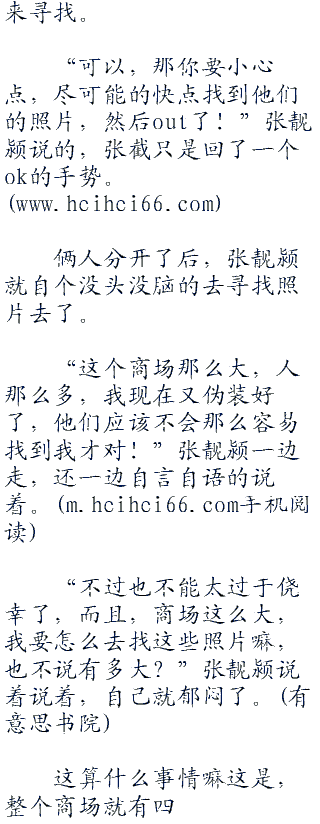 来寻找。
“可以，那你要小心
点，尽可能的快点找到他们
的照片，然后out了！”张靓
颍说的，张截只是回了一个
ok的手势。
(www.hcihci66.com)
俩人分开了后，张靓颍
就自个没头没脑的去寻找照
片去了。
“这个商场那么大，人
那么多，我现在又伪装好
了，他们应该不会那么容易
找到我才对！”张靓颍一边
走，还一边自言自语的说
着。(m.hcihci66.com手机阅
读)
“不过也不能太过于侥
幸了，而且，商场这么大，
我要怎么去找这些照片嘛，
也不说有多大？”张靓颍说
着说着，自己就郁闷了。(有
意思书院)
这算什么事情嘛这是，
整个商场就有四